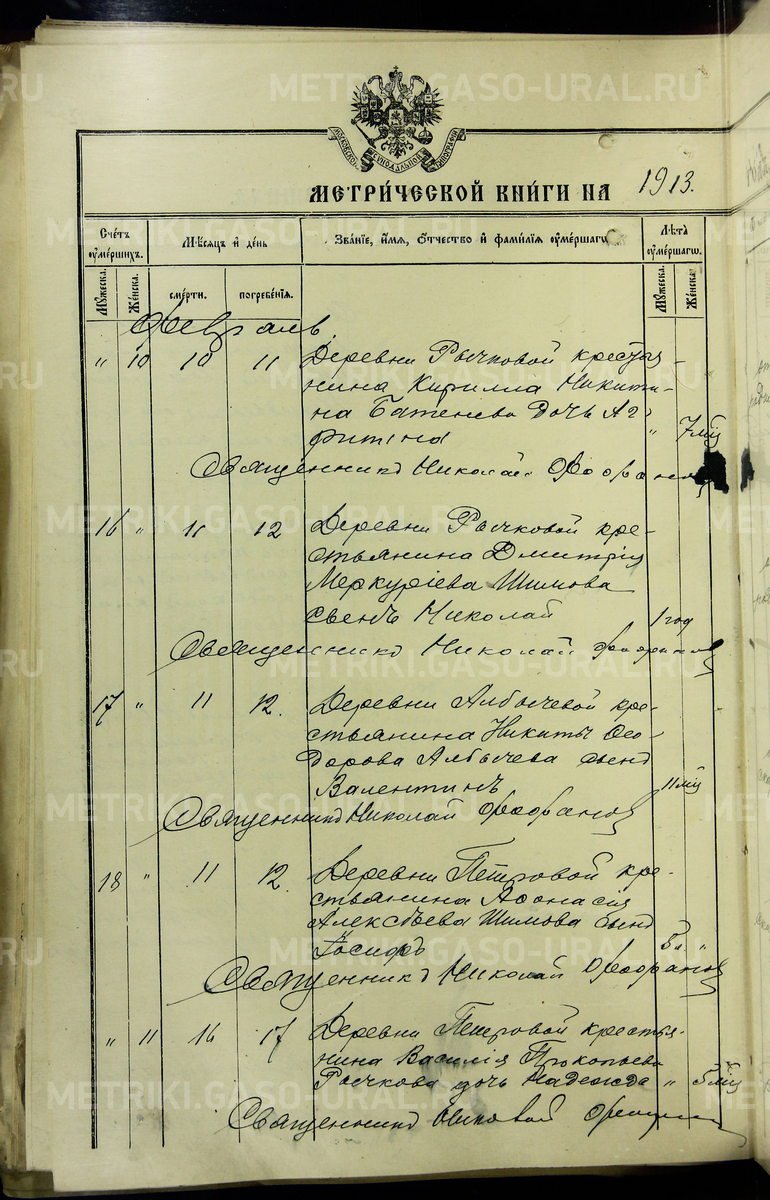 METRIKI.GASO-URAL.RU
МЕТРИ́ЧЕСКОЙ КНИ́ГИ НА 1913.
Сче́тъ ᲂу҆ме́ршихъ.
Мѣ́сяцъ и҆ де́нь
Зва́нїе, и҆́мя, ѻ҆́тчество и҆ фами́лїя ᲂу҆ме́ршагѡ
Лѣ́та ᲂу҆ме́ршагѡ.
Мꙋ́жеска. Же́нска. сме́рти. погребе́нїя. Мꙋ́жеска. Же́нска.
Февраль.
" 10 10 11 Деревни Рычковой крестья-
нина Кирилла Никити-
на Батенева дочь Аг-
" 7 мѣс
Священникъ Николай
16 " 11 12 Деревни Рычковой кре-
стьянина Димитрія
Меркуріева Шимова
сынъ Николай 1 год
Священникъ Николай
17 " 11 12. Деревни Албычевой кре-
стьянина Никиты Ѳео-
дорова Албычева сынъ
Валентинъ 11 мѣс
Священникъ Николай
18 " 11 12. Деревни Петровой кре-
стьянина Аѳонасія
Алексѣева Шимова сынъ
Іосифъ "
Священникъ Николай
" 11 16 17 Деревни Петровой крестья-
нина Василія Прокопьева
Рычкова дочь Надежда " 5 мѣс
Священникъ Николай